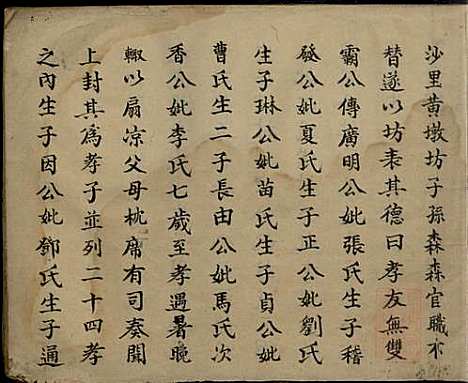 沙里黄墩坊子孫森森官職不
替遂以坊表其德曰孝友無雙
霸公傳廣明公妣張氏生子稽
發公妣夏氏生子正公妣劉氏
生子琳公妣苗氏生子貞公妣
曹氏生二子長由公妣馬氏次
香公妣李氏七歲至孝遇暑晚
輙以扇凉父母枕席有司奏聞
上封其為孝子並列二十四孝
之内生子因公妣鄧氏生子通